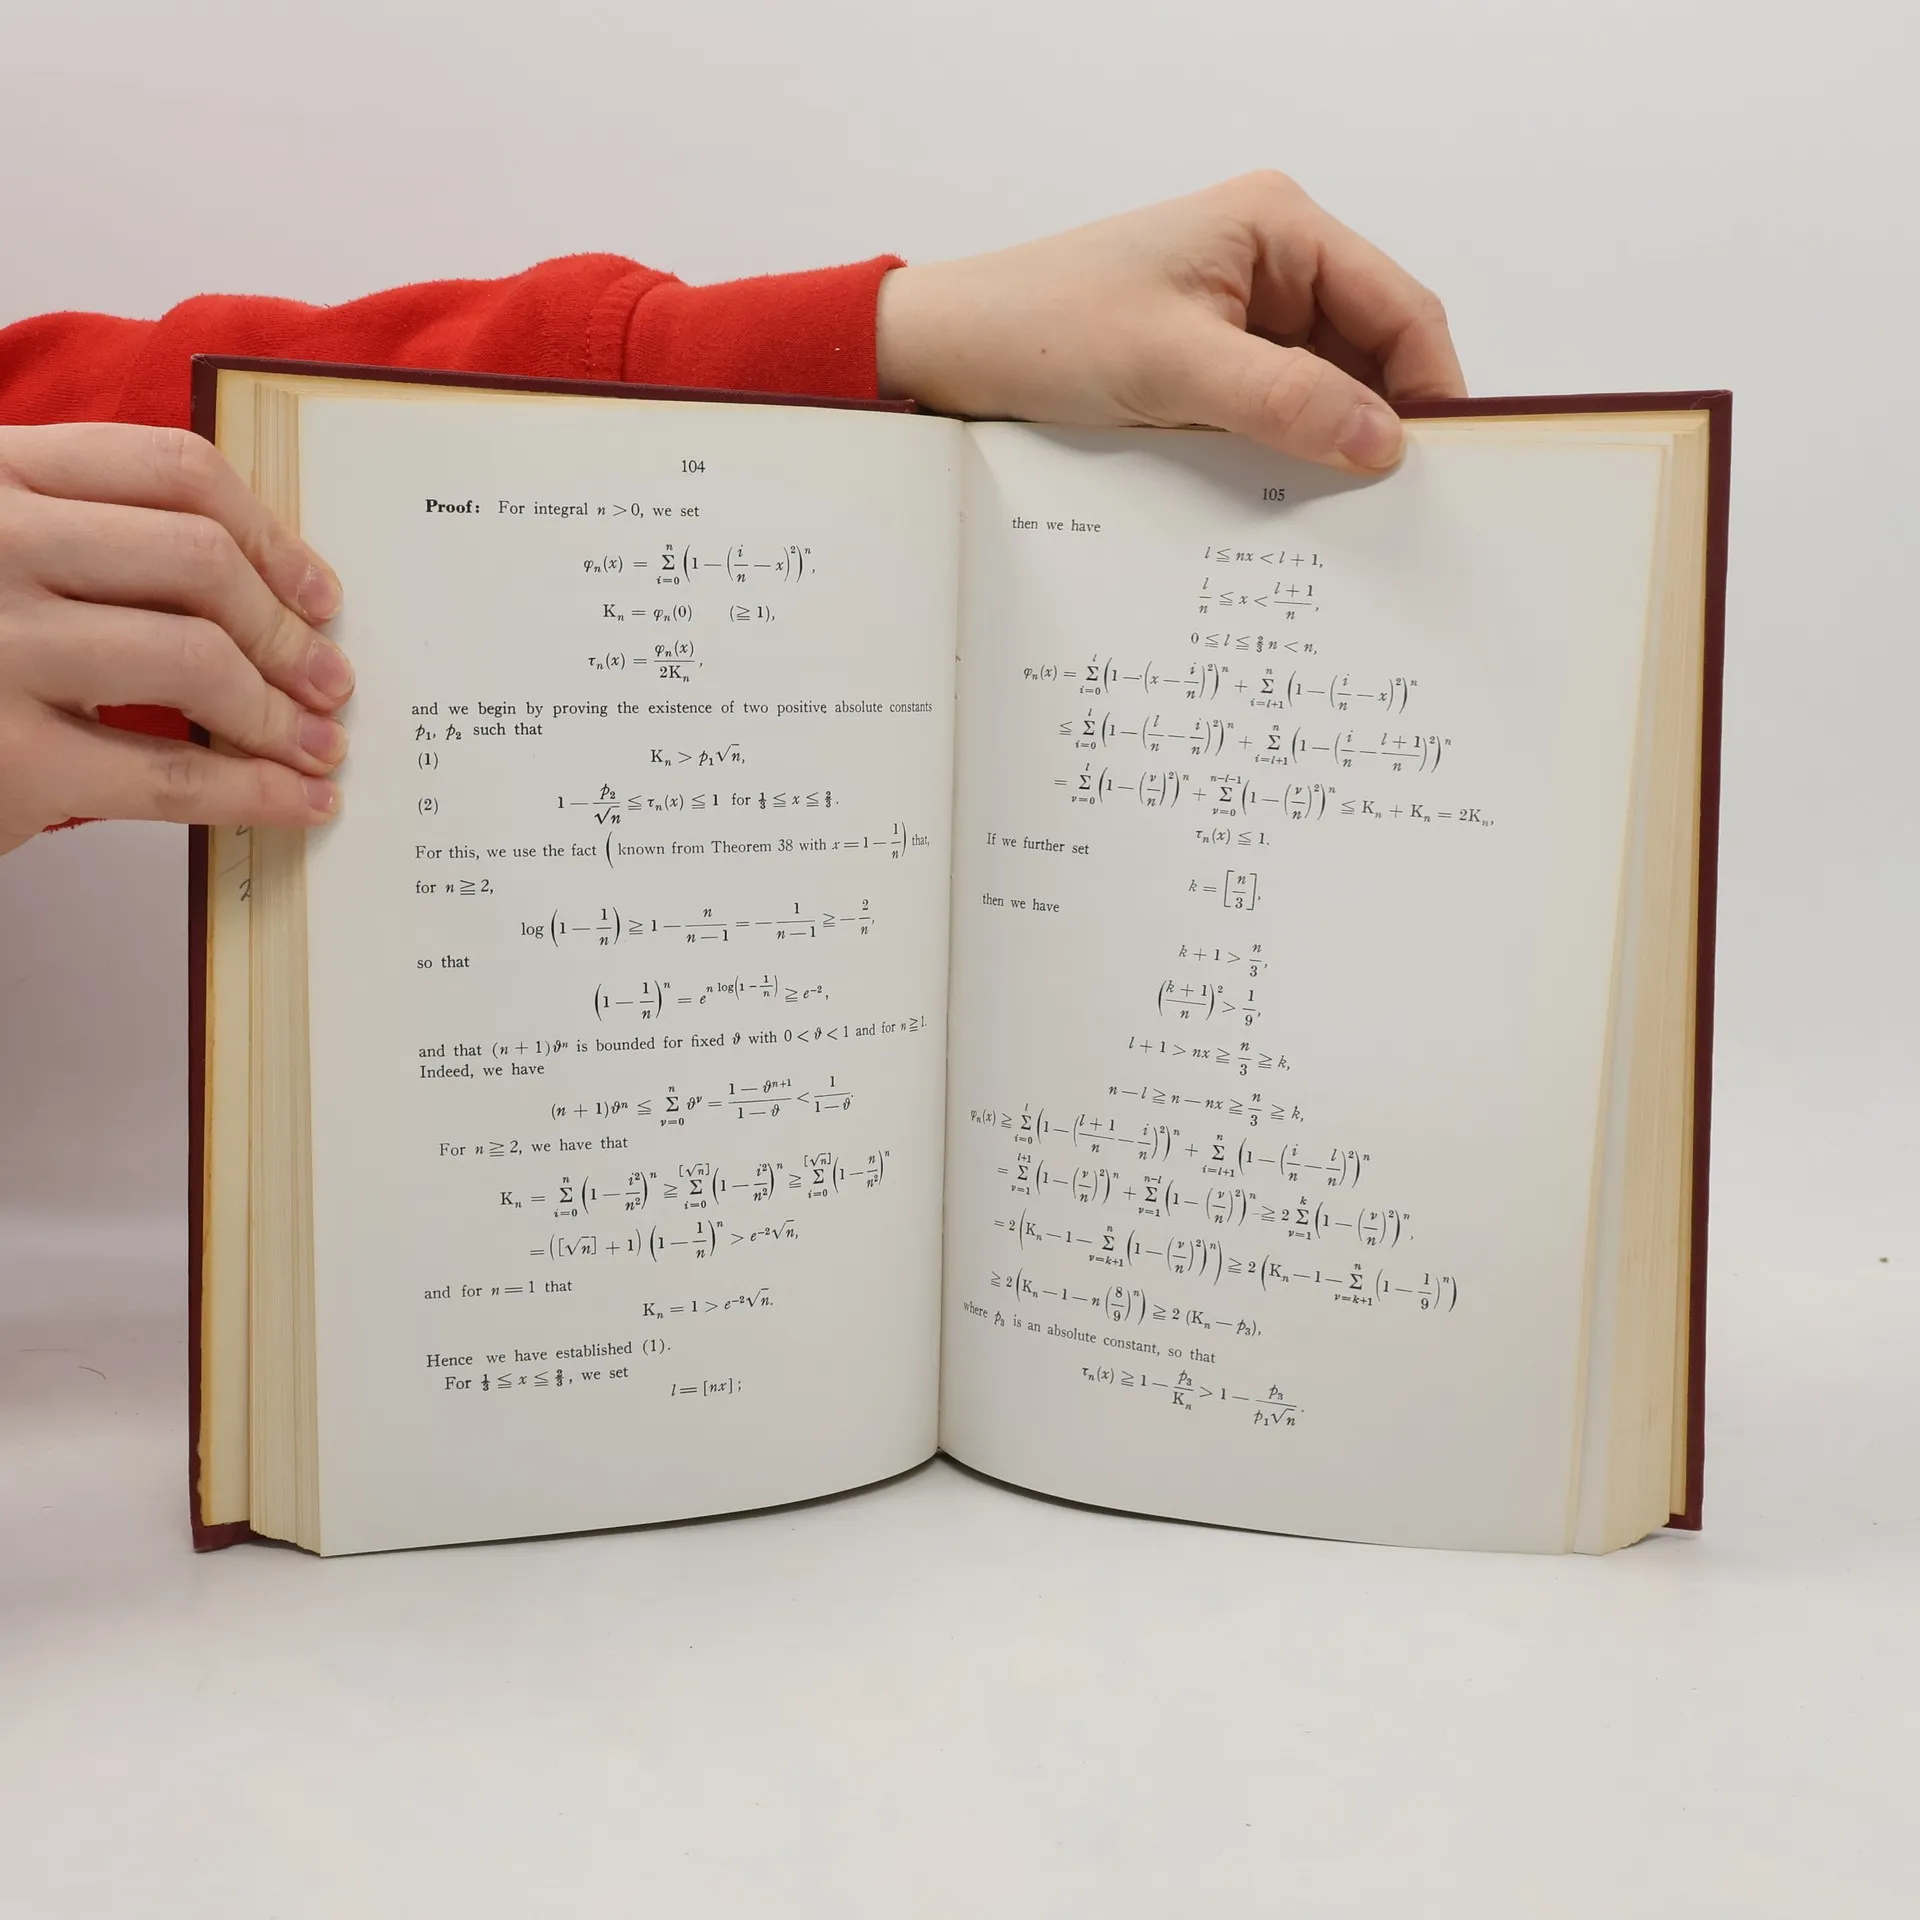 104
Proof: For integral n > 0, we set
φₙ(x) = Σ_{i=0}^{n} (1 − (i/n − x)²)ⁿ,
Kₙ = φₙ(0) (≧ 1),
τₙ(x) = φₙ(x)/2Kₙ,
and we begin by proving the existence of two positive absolute constants
p₁, p₂ such that
(1) Kₙ > p₁√n,
(2) 1 − p₂/√n ≦ τₙ(x) ≦ 1 for ⅓ ≦ x ≦ ⅔.
For this, we use the fact (known from Theorem 38 with x = 1 − 1/n) that,
for n ≧ 2,
log (1 − 1/n) ≧ 1 − n/(n − 1) = − 1/(n − 1) ≧ − 2/n,
so that
(1 − 1/n)ⁿ = e^{n log(1 − 1/n)} ≧ e⁻²,
and that (n + 1)ϑⁿ is bounded for fixed ϑ with 0 < ϑ < 1 and for n ≧ 1.
Indeed, we have
(n + 1)ϑⁿ ≦ Σ_{ν=0}^{n} ϑ^ν = (1 − ϑⁿ⁺¹)/(1 − ϑ) < 1/(1 − ϑ).
For n ≧ 2, we have that
Kₙ = Σ_{i=0}^{n} (1 − i²/n²)ⁿ ≧ Σ_{i=0}^{[√n]} (1 − i²/n²)ⁿ ≧ Σ_{i=0}^{[√n]} (1 − n/n²)ⁿ
= ([√n] + 1) (1 − 1/n)ⁿ > e⁻²√n,
and for n = 1 that
Kₙ = 1 > e⁻²√n.
Hence we have established (1).
For ⅓ ≦ x ≦ ⅔, we set
l = [nx];
105
then we have
l ≦ nx < l + 1,
l/n ≦ x < (l + 1)/n,
0 ≦ l ≦ ⅔ n < n,
φₙ(x) = Σ_{i=0}^{l} (1 − (x − i/n)²)ⁿ + Σ_{i=l+1}^{n} (1 − (i/n − x)²)ⁿ
≦ Σ_{i=0}^{l} (1 − (l/n − i/n)²)ⁿ + Σ_{i=l+1}^{n} (1 − (i/n − (l + 1)/n)²)ⁿ
= Σ_{ν=0}^{l} (1 − (ν/n)²)ⁿ + Σ_{ν=0}^{n−l−1} (1 − (ν/n)²)ⁿ ≦ Kₙ + Kₙ = 2Kₙ,
τₙ(x) ≦ 1.
If we further set
k = [n/3],
then we have
k + 1 > n/3,
((k + 1)/n)² > 1/9,
l + 1 > nx ≧ n/3 ≧ k,
n − l ≧ n − nx ≧ n/3 ≧ k,
φₙ(x) ≧ Σ_{i=0}^{l} (1 − ((l + 1)/n − i/n)²)ⁿ + Σ_{i=l+1}^{n} (1 − (i/n − l/n)²)ⁿ
= Σ_{ν=1}^{l+1} (1 − (ν/n)²)ⁿ + Σ_{ν=1}^{n−l} (1 − (ν/n)²)ⁿ ≧ 2 Σ_{ν=1}^{k} (1 − (ν/n)²)ⁿ,
= 2 (Kₙ − 1 − Σ_{ν=k+1}^{n} (1 − (ν/n)²)ⁿ) ≧ 2 (Kₙ − 1 − Σ_{ν=k+1}^{n} (1 − 1/9)ⁿ)
≧ 2 (Kₙ − 1 − n (8/9)ⁿ) ≧ 2 (Kₙ − p₃),
where p₃ is an absolute constant, so that
τₙ(x) ≧ 1 − p₃/Kₙ > 1 − p₃/p₁√n.